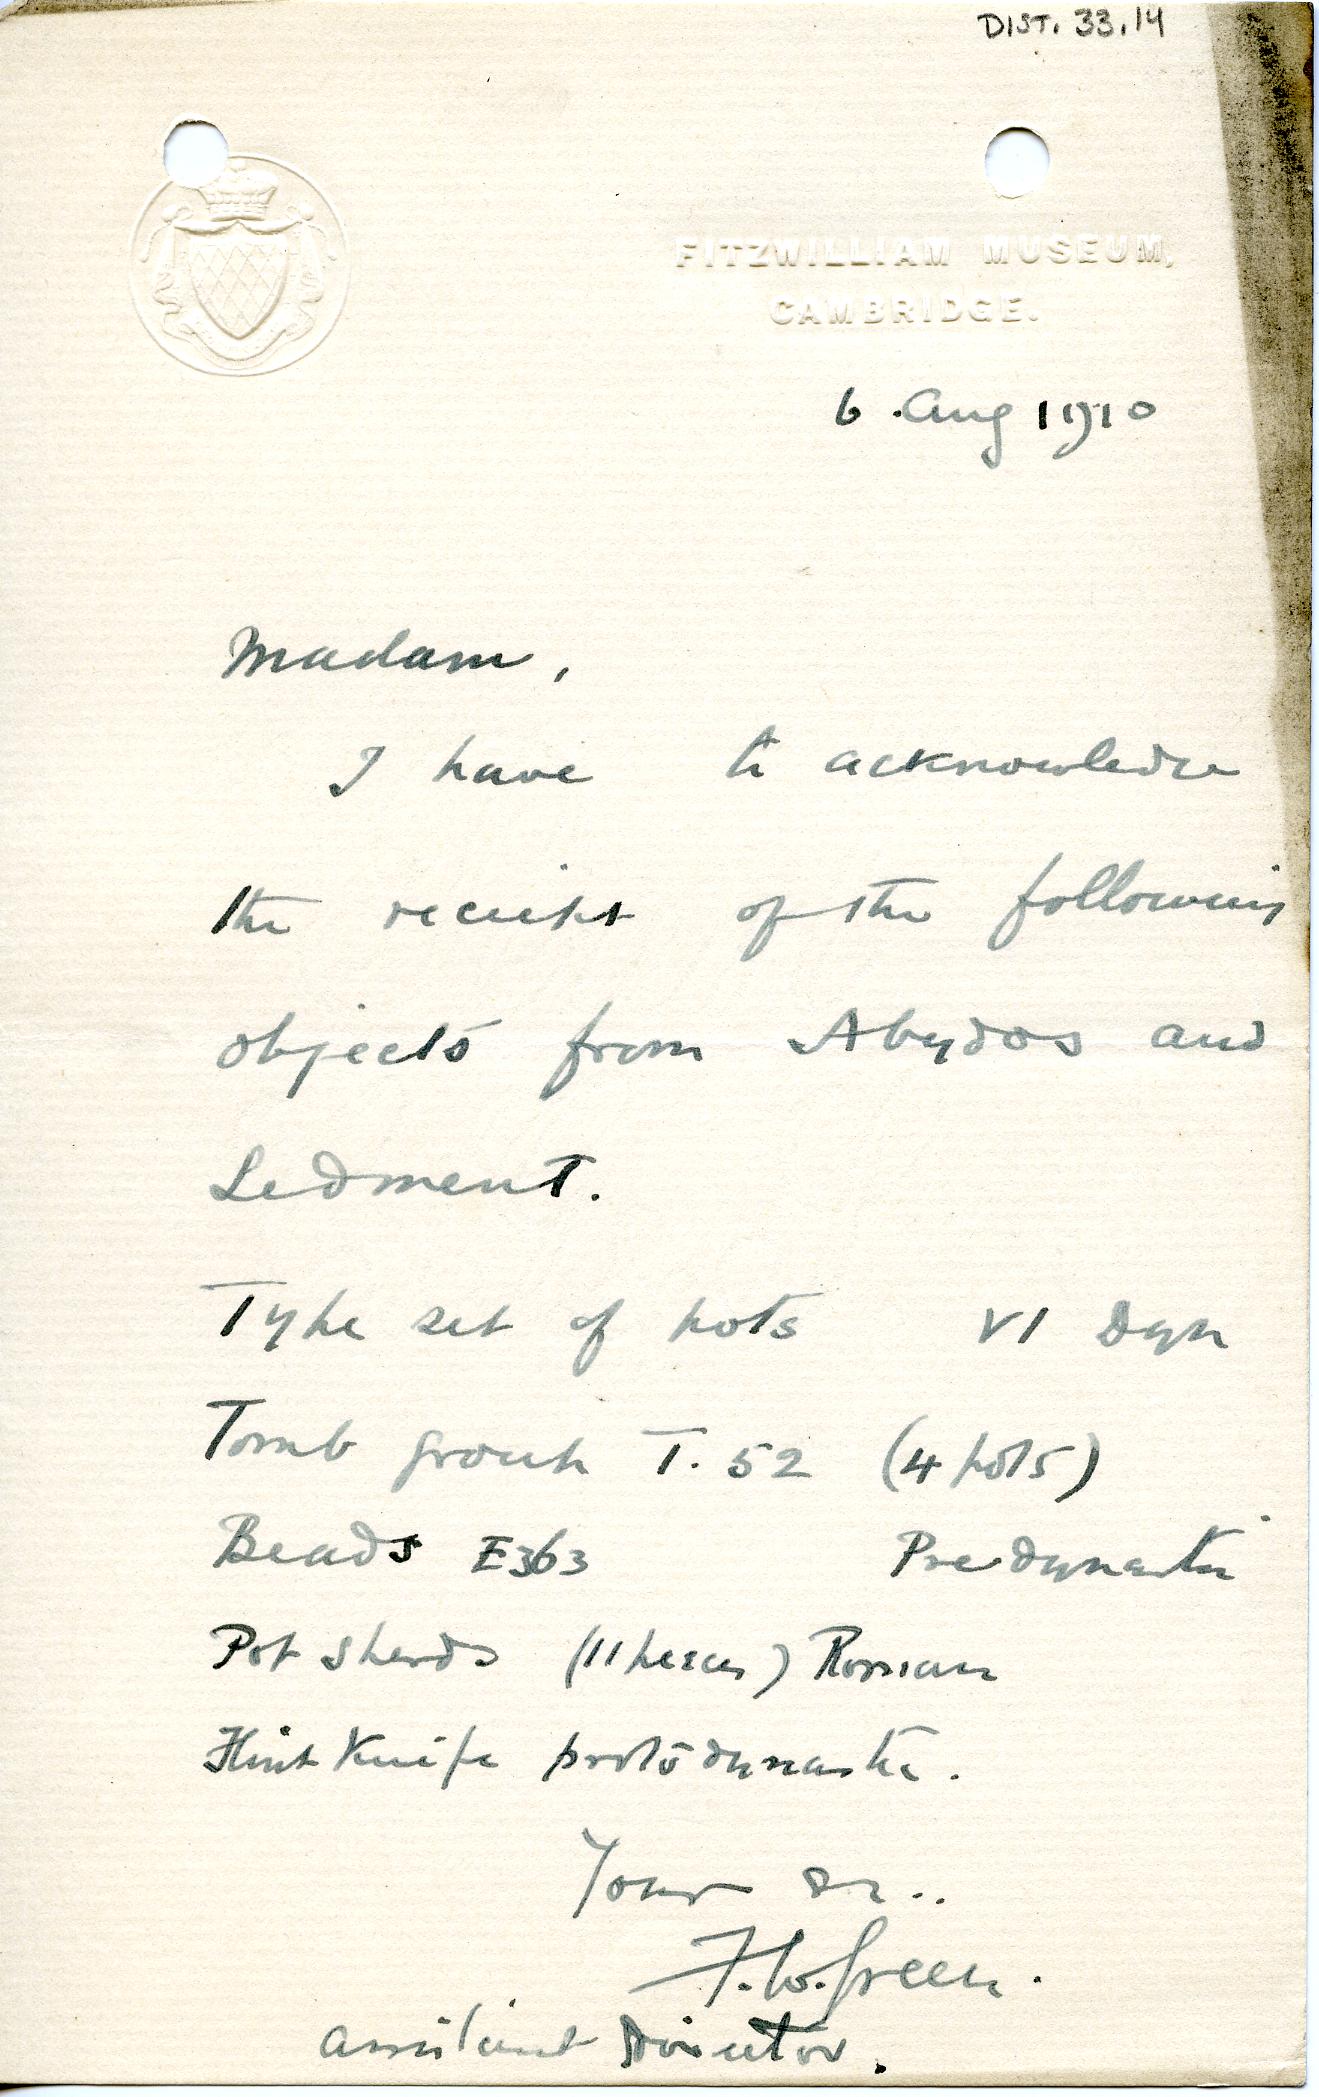 DIST. 33.14
FITZWILLIAM MUSEUM,
CAMBRIDGE.
6 Aug 1910
Madam,
I have to acknowledge
the reciept of the following
objects from Abydos and
Sedment.
Type set of pots VI Dyn
Tomb group T. 52 (4 pots)
Beads E363 Predynastic
Pot sherds (11 pieces) Roman
Flint Knife protodynastic.
Your
F. W. Green.
Assistant Director.